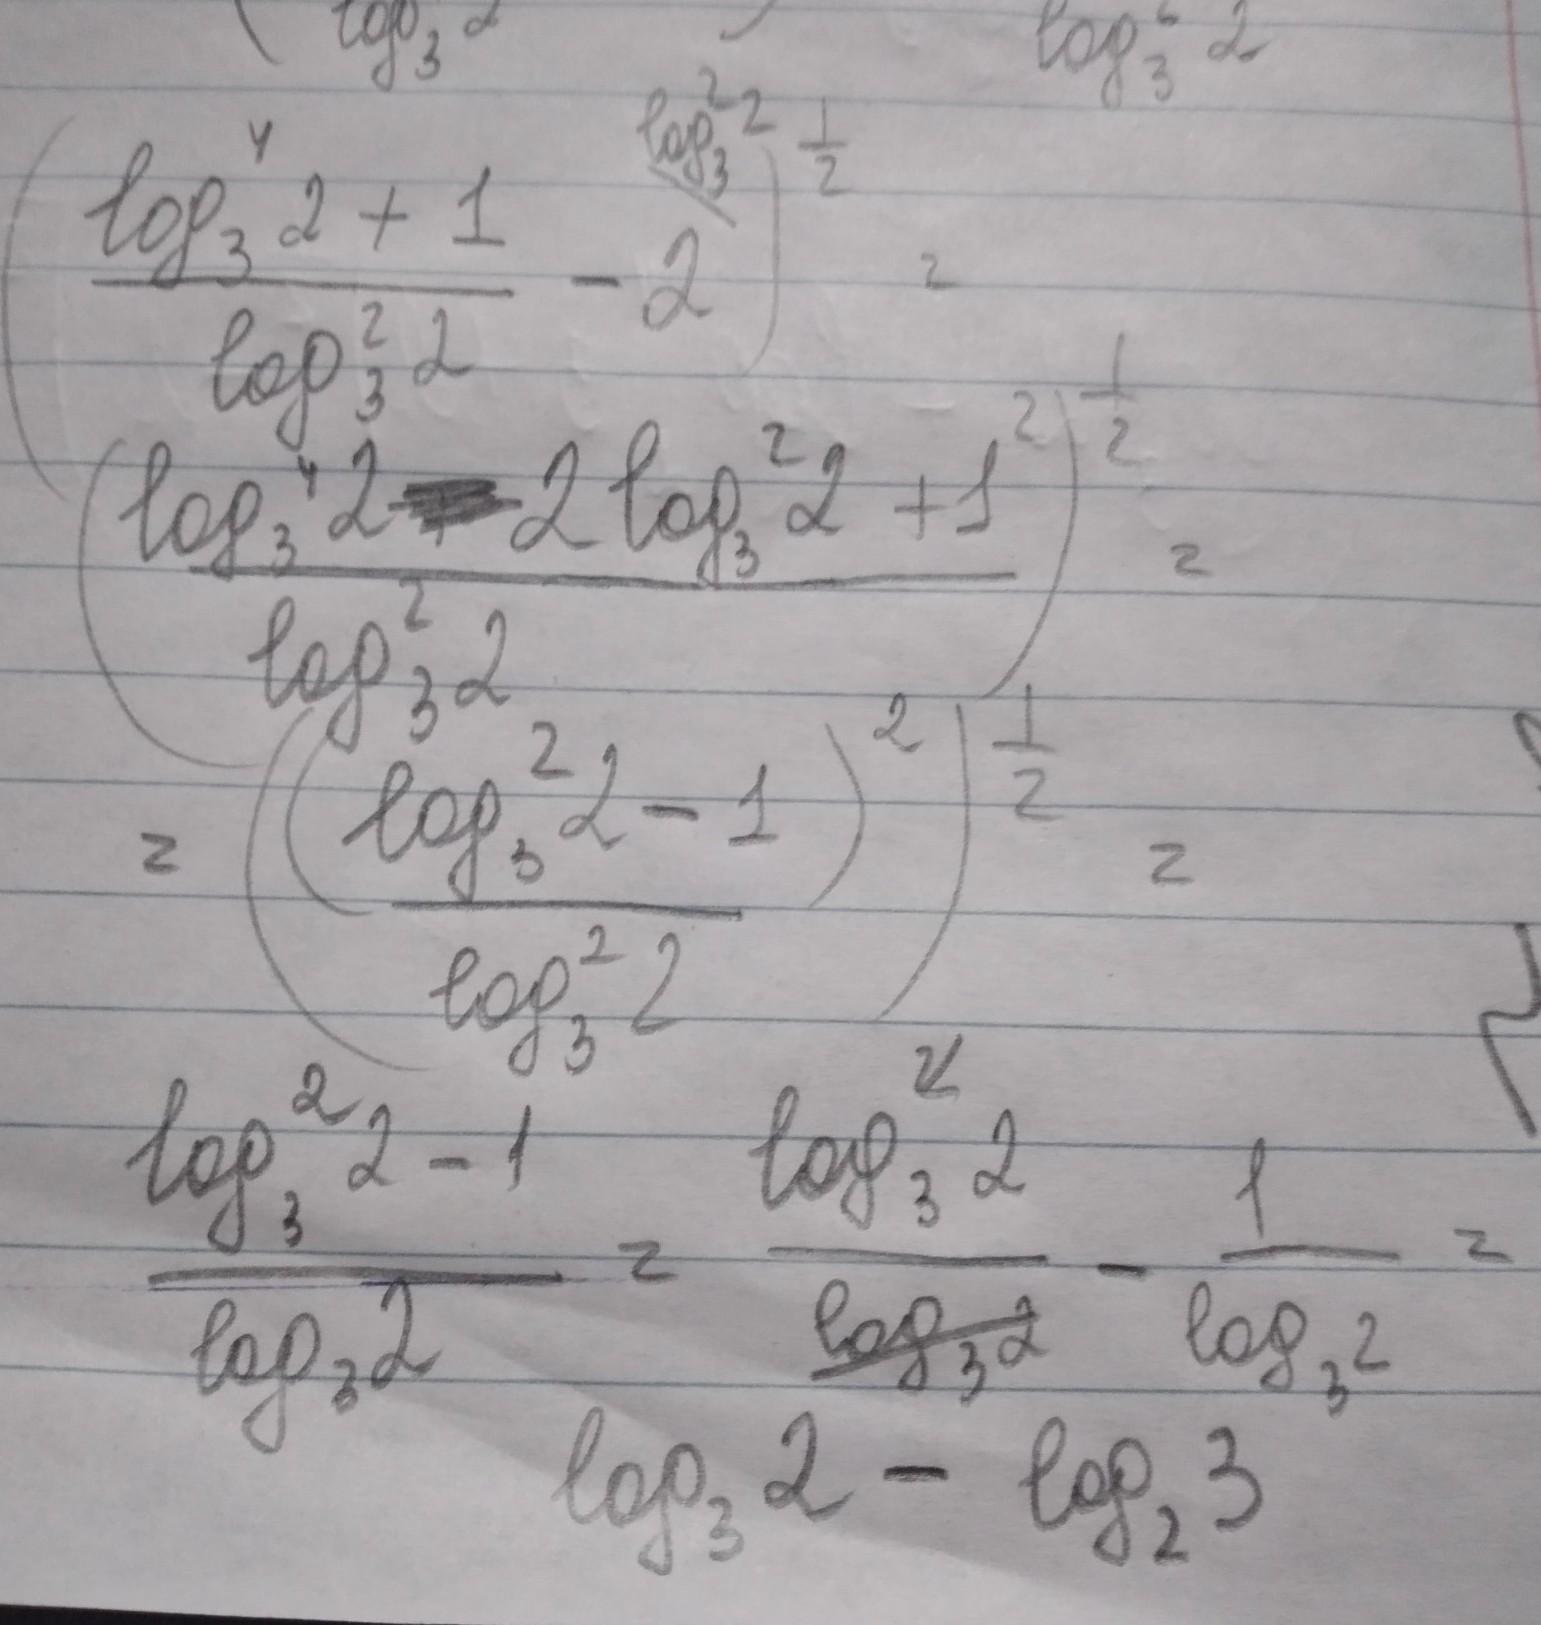 ( log₃2 ) log₃2
( (log₃⁴2 + 1)/(log₃²2) - 2 )^(1/2) log₃²2 =
( (log₃⁴2 - 2log₃²2 + 1²)/(log₃²2) )^(1/2) =
= ( (log₃²2 - 1)²/(log₃²2) )^(1/2) =
(log₃²2 - 1)/(log₃2) = (log₃²2)/(log₃2) - 1/(log₃2) =
log₃2 - log₂3